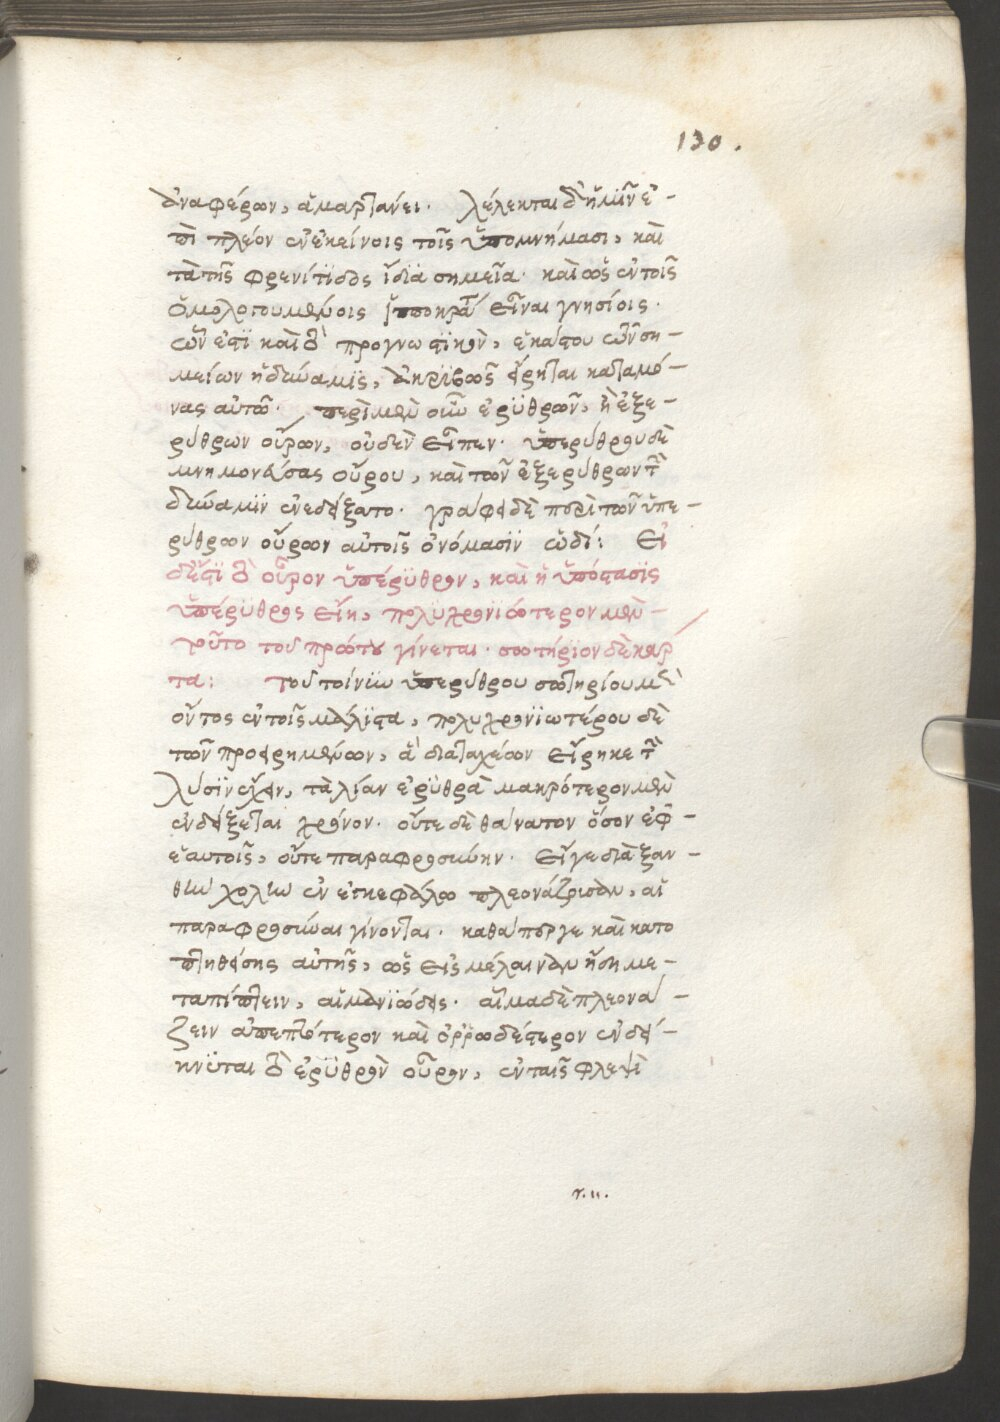 130.
ἀναφέρων, ἁμαρτάνει. λέλεκται δὲ ἡμῖν ἐ-
πὶ πλέον ἐν ἐκείνοις τοῖς ὑπομνήμασι, καὶ
τὰ τῆς φρενίτιδος ἴδια σημεῖα. καὶ ὡς ἐν τοῖς
ὁμολογουμένοις Ἱπποκρά εἶναι γνησίοις.
ὧν ἐστὶ καὶ τὸ προγνωστικὸν, ἑκάστου τῶν ση-
μείων ἡ δύναμις, ἀκριβῶς εἴρηται καταμό-
νας αὐτῶ. περὶ μὲν οὖν ἐρυθρῶν, ἢ ἐξε-
ρύθρων οὔρων, οὐδὲν εἶπεν. ὑπερύθρου δὲ
μνημονεύσας οὔρου, καὶ τῶν ἐξερύθρων τὴν
δύναμιν ἐνεδείξατο. γράφει δὲ περὶ τῶν ὑπε-
ρύθρων οὔρων αὐτοῖς ὀνόμασιν ὡδί: Εἰ
δ' εἴη τὸ οὖρον ὑπέρυθρον, καὶ ἡ ὑπόστασις
ὑπέρυθρος εἴη, πολυχρονιώτερον μὲν
τοῦτο τοῦ πρώτου γίνεται. σωτήριον δὲ κάρ
τα: Τοῦ τοίνυν ὑπερύθρου σωτηρίου μὲν
ὄντος ἐν τοῖς μάλιστα, πολυχρονιωτέρου δὲ
τῶν προειρημένων, ἃ διαταχέων εἴρηκε τὴν
λύσιν ἔχειν, τὰ λίαν ἐρυθρὰ μακρότερον μὲν
ἐνδείξεται χρόνον. οὔτε δὲ θάνατον ὅσον ἐφ'-
ἑαυτοῖς, οὔτε παραφροσύνην. εἴγε διὰ ξαν-
θὴν χολὴν ἐν ἐγκεφάλω πλεονάζουσαν, αἱ
παραφροσύναι γίνονται. καθάπέρ γε καὶ κατο
πτηθείσης αὐτῆς, ὡς εἰς μέλαιναν ἤδη με-
ταπίπτειν, αἱ μανιώδεις. αἷμα δὲ πλεονά-
ζειν ἀπεπτότερον καὶ ὀρρωδέστερον ἐνδεί-
κνυται τὸ ἐρυθρὸν οὖρον, ἐν ταῖς φλεψὶ